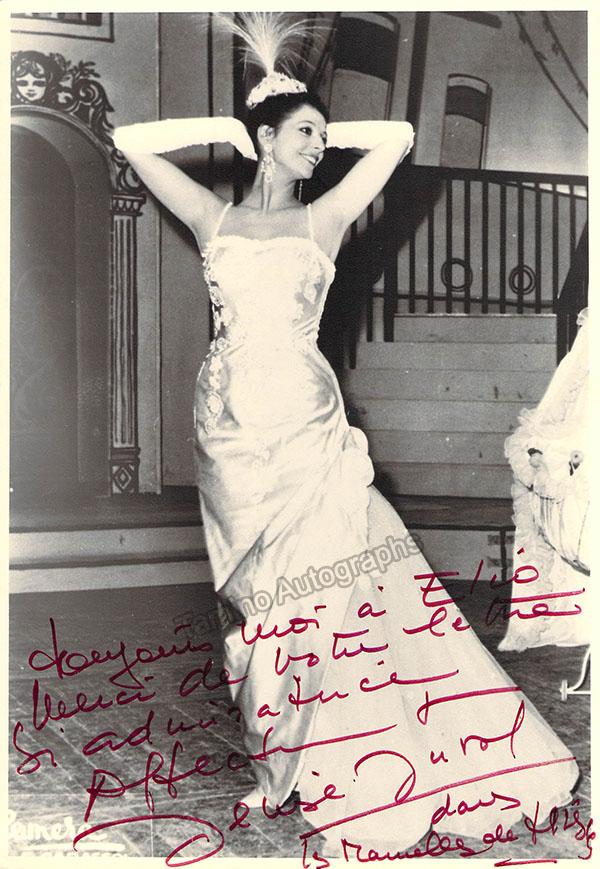 Tamino Autographs
moi à Elio
Merci de votre lettre
si admiratrice
Affect
Denise Duval
dans
Les Mamelles de